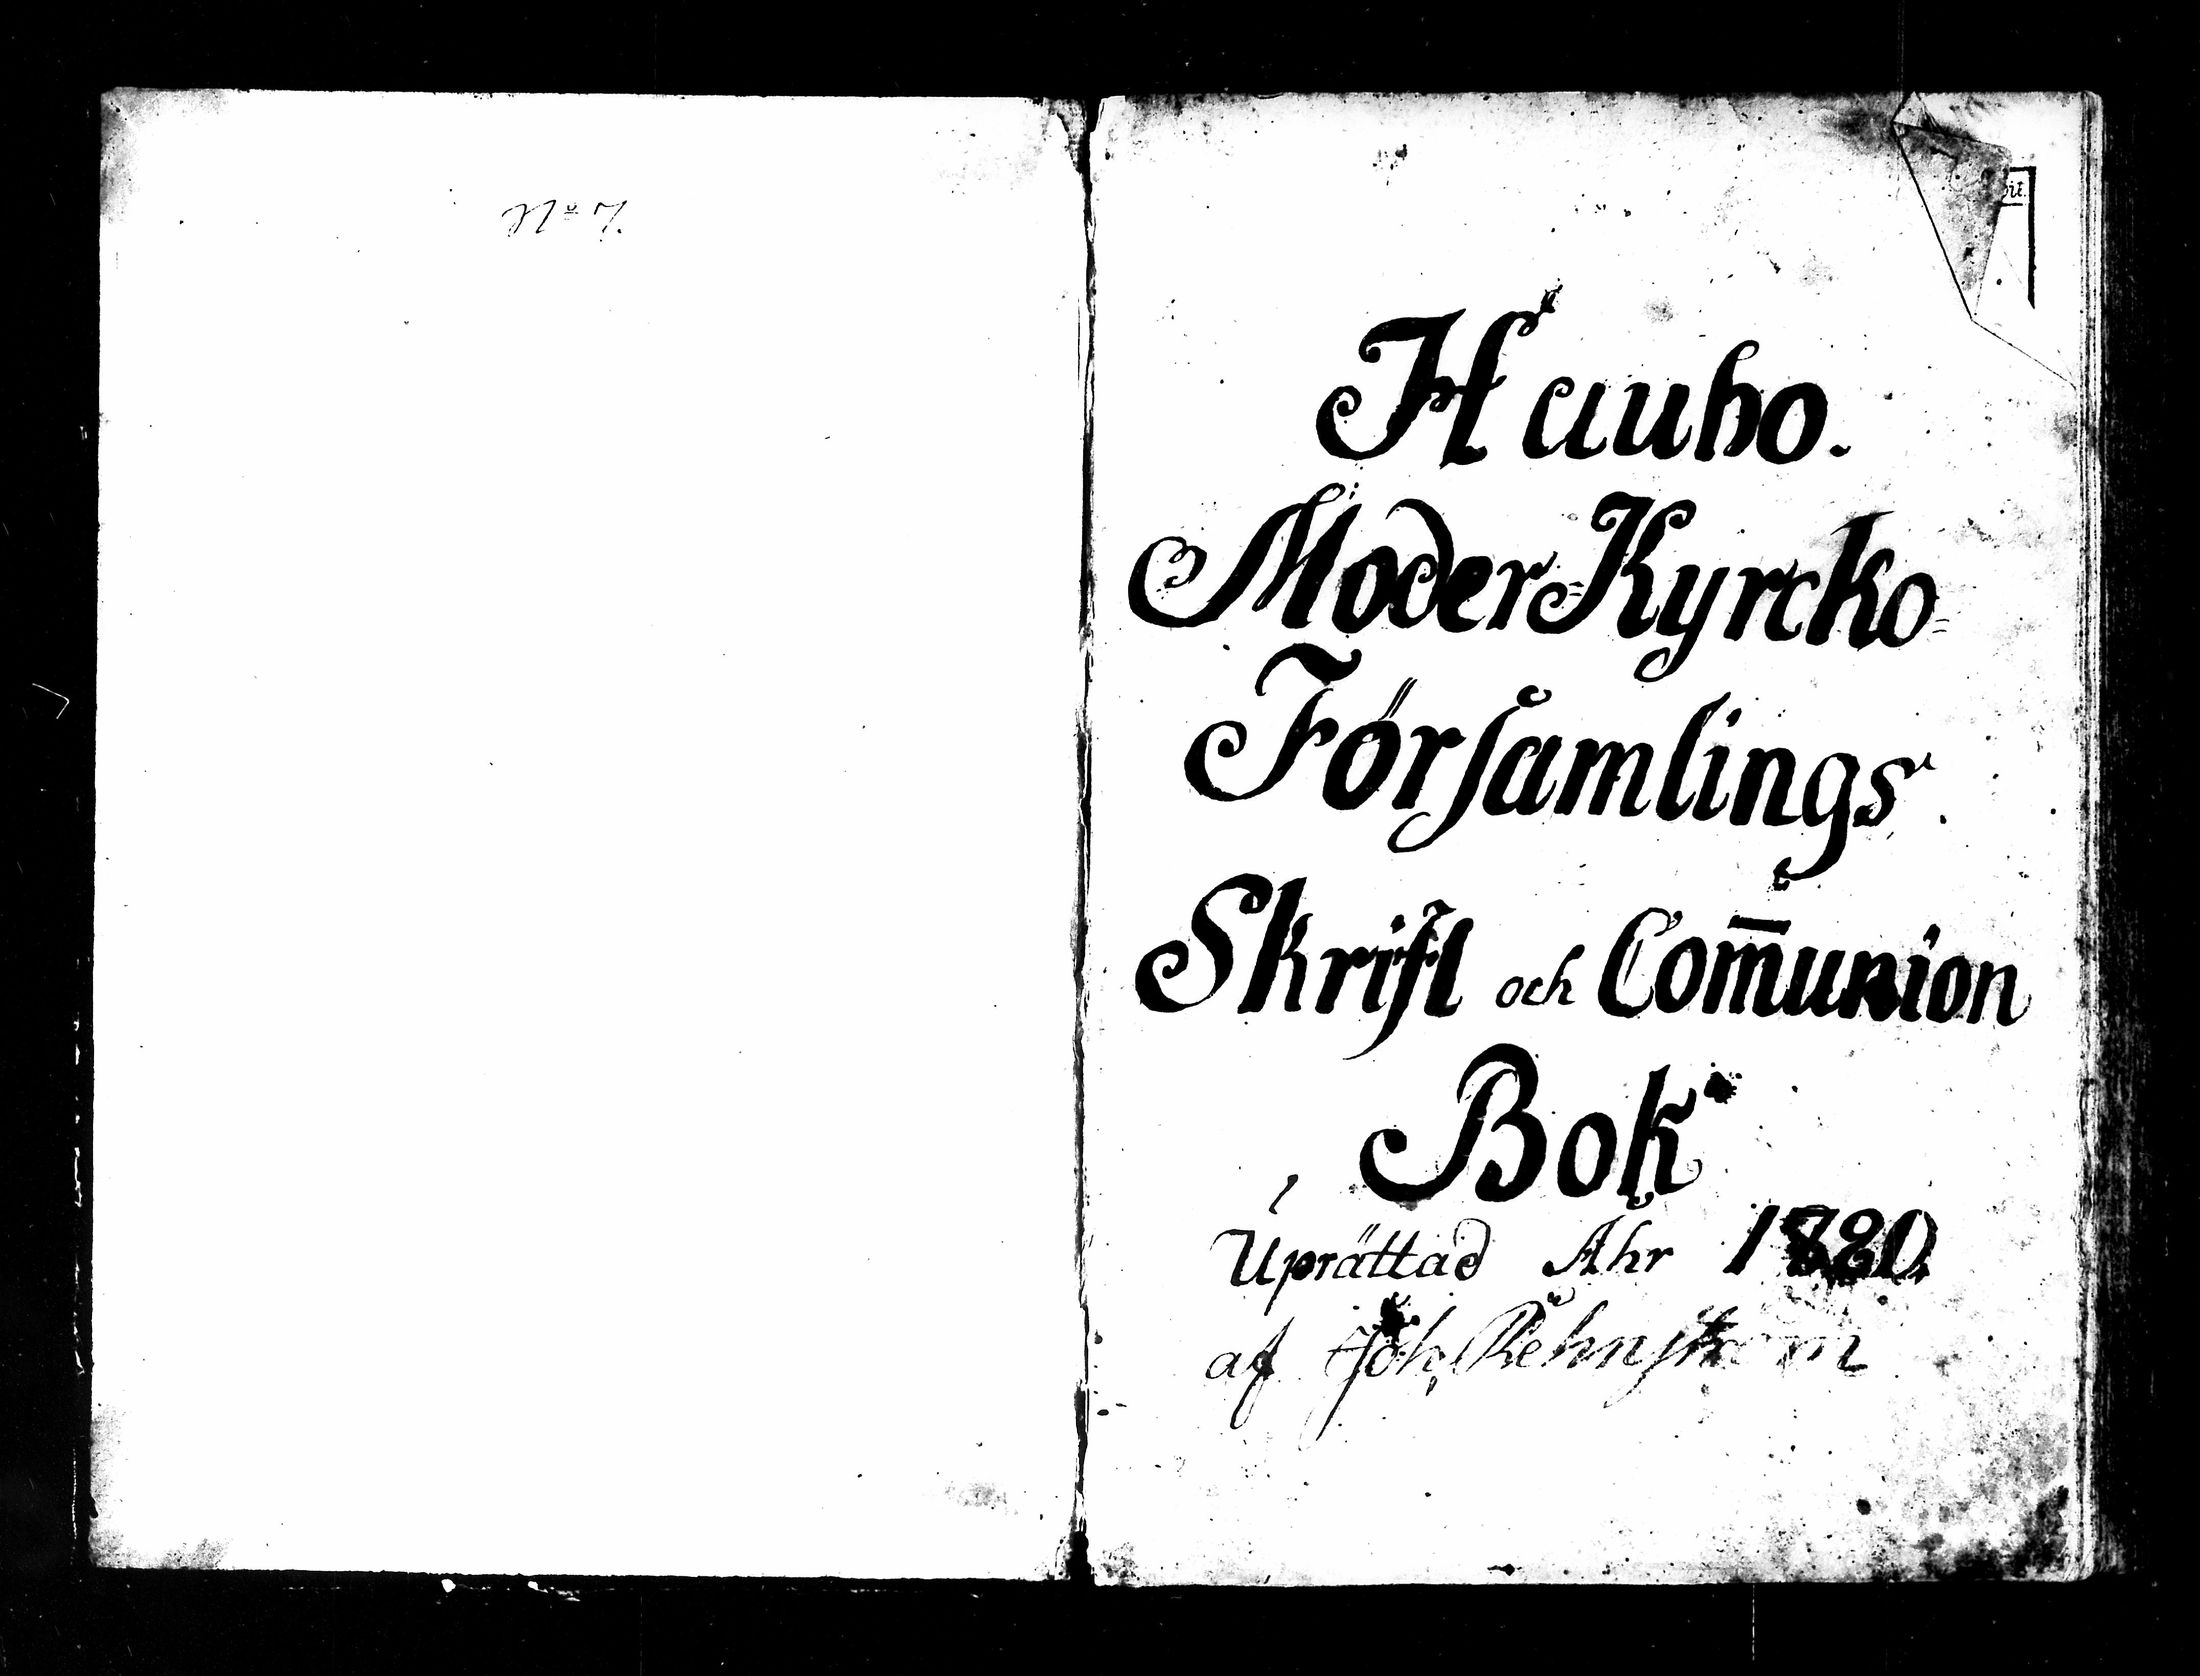 No 7.
Hauho.
Moder-Kyrcko=
Församlings
Skrift och Com̅union
Bok
Uprättad Åhr
af Joh. Rehnström